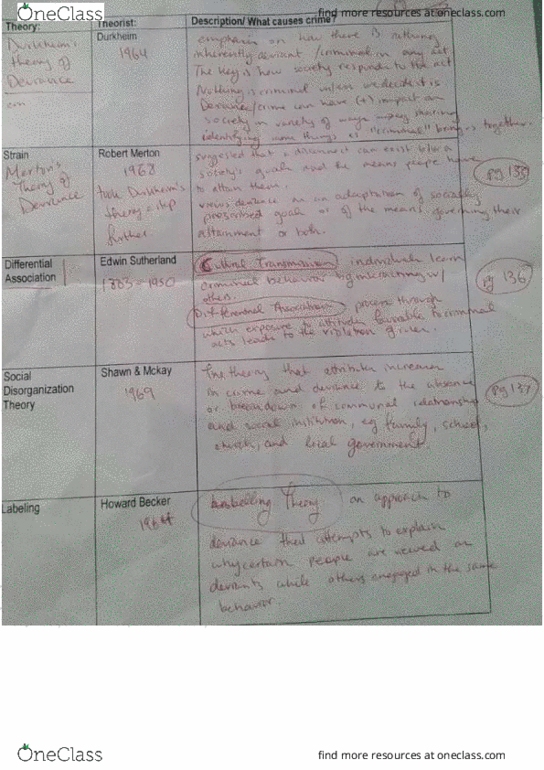 OneClass
find more resources at oneclass.com
Theory:
Theorist:
Description/ What causes crime?
Durkheim's
theory of
Deviance
Durkheim
1964
emphasis on how there is nothing
inherently deviant /criminal in any act
The key is how society responds to the act
Nothing is criminal unless we decide it is
Deviance/crime can have (+) impact on
society in variety of ways
identifying some things as "criminal" brings together.
Strain
Merton's
Theory of
Deviance
Robert Merton
1968
took Durkheim's
theory a step
further.
suggested that a disconnect can exist b/w a
society's goals and the means people have
to attain them.
views deviance as an adaptation of socially
prescribed goals or of the means governing their
attainment or both.
pg 135
Differential
Association
Edwin Sutherland
1883-1950
Cultural Transmission individuals learn
criminal behavior by interacting w/
others.
Differential Association process through
which exposure to attitudes favorable to criminal
acts leads to the violation of rules.
pg 136
Social
Disorganization
Theory
Shawn & Mckay
1969
The theory that attributes increases
in crime and deviance to the absence
or breakdown of communal relationship
and social institution, eg family, school,
church, and local government.
pg 137
Labeling
Howard Becker
1964
Labelling Theory an approach to
deviance that attempts to explain
why certain people are viewed as
deviants while others engaged in the same
behavior.
OneClass
find more resources at oneclass.com